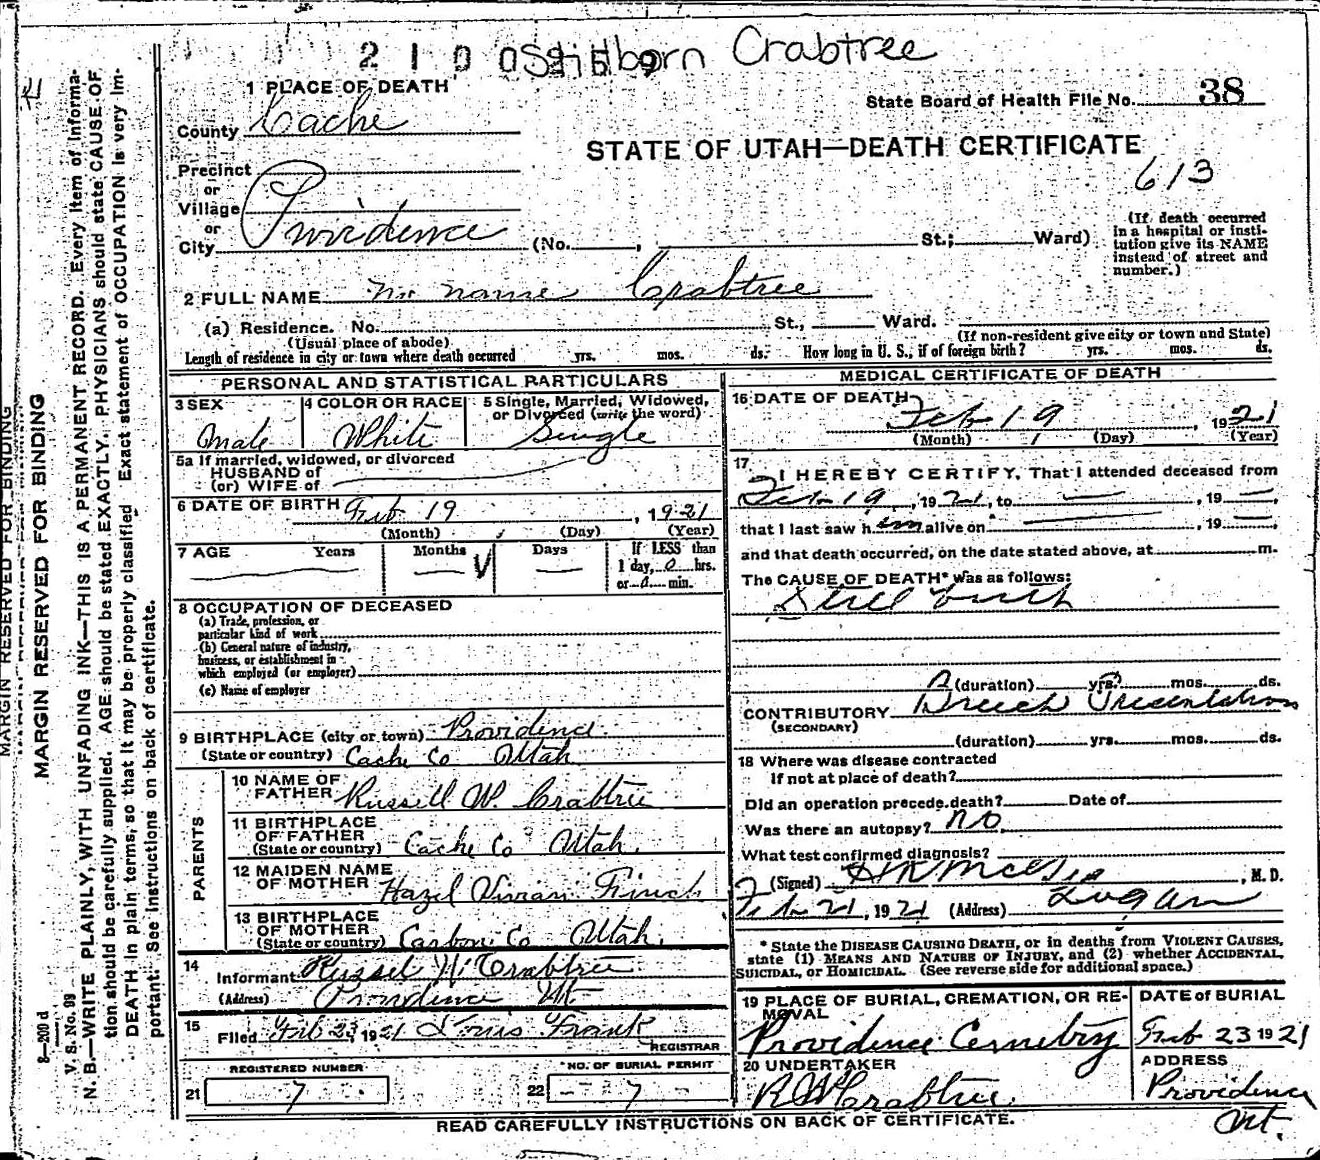 2 1 0 0 2 5 9 Stillborn Crabtree
1 PLACE OF DEATH
State Board of Health File No. 38
County Cache
STATE OF UTAH—DEATH CERTIFICATE
613
Precinct
or
Village
or
City Providence (No. , St.; Ward)
(If death occurred
in a hospital or insti-
tution give its NAME
instead of street and
number.)
2 FULL NAME No name Crabtree
(a) Residence. No. St., Ward.
(Usual place of abode) (If non-resident give city or town and State)
Length of residence in city or town where death occurred yrs. mos. ds. How long in U. S., if of foreign birth? yrs. mos. ds.
PERSONAL AND STATISTICAL PARTICULARS
3 SEX
Male
4 COLOR OR RACE
White
5 Single, Married, Widowed,
or Divorced (write the word)
Single
5a If married, widowed, or divorced
HUSBAND of
(or) WIFE of
6 DATE OF BIRTH Feb 19, 1921
(Month) (Day) (Year)
7 AGE Years Months Days If LESS than
1 day, 0 hrs.
or 0 min.
8 OCCUPATION OF DECEASED
(a) Trade, profession, or
particular kind of work
(b) General nature of industry,
business, or establishment in
which employed (or employer)
(c) Name of employer
9 BIRTHPLACE (city or town) Providence
(State or country) Cache Co Utah
PARENTS
10 NAME OF
FATHER Russell W. Crabtree
11 BIRTHPLACE
OF FATHER
(State or country) Cache Co Utah.
12 MAIDEN NAME
OF MOTHER Hazel Vivian Finch
13 BIRTHPLACE
OF MOTHER
(State or country) Carbon Co Utah.
14
Informant Russel W Crabtree
(Address) Providence Ut
15
Filed Feb 23, 1921 Louis Frank
REGISTRAR
REGISTERED NUMBER
21 7
*NO. OF BURIAL PERMIT
22 – 7
MEDICAL CERTIFICATE OF DEATH
16 DATE OF DEATH
Feb 19, 1921
(Month) (Day) (Year)
17
I HEREBY CERTIFY, That I attended deceased from
Feb 19, 1921, to — , 19 —
that I last saw him alive on — , 19 —
and that death occurred, on the date stated above, at m.
The CAUSE OF DEATH* was as follows:
Still birth
(duration) yrs. mos. ds.
CONTRIBUTORY Breech Presentation
(SECONDARY)
(duration) yrs. mos. ds.
18 Where was disease contracted
If not at place of death?
Did an operation precede death? Date of
Was there an autopsy? No
What test confirmed diagnosis?
(Signed) , M. D.
Feb 21, 1921 (Address) Logan
* State the DISEASE CAUSING DEATH, or in deaths from VIOLENT CAUSES,
state (1) MEANS AND NATURE OF INJURY, and (2) whether ACCIDENTAL,
SUICIDAL, or HOMICIDAL. (See reverse side for additional space.)
19 PLACE OF BURIAL, CREMATION, OR RE-
MOVAL
Providence Cemetery
DATE of BURIAL
Feb 23 1921
20 UNDERTAKER
R W Crabtree.
ADDRESS
Providence
Ut.
READ CAREFULLY INSTRUCTIONS ON BACK OF CERTIFICATE.
MARGIN RESERVED FOR BINDING
MARGIN RESERVED FOR BINDING
8—200 d
V. S. No. 09
N. B.—WRITE PLAINLY, WITH UNFADING INK—THIS IS A PERMANENT RECORD. Every item of informa-
tion should be carefully supplied. AGE should be stated EXACTLY. PHYSICIANS should state CAUSE OF
DEATH in plain terms, so that it may be properly classified. Exact statement of OCCUPATION is very im-
portant. See instructions on back of certificate.